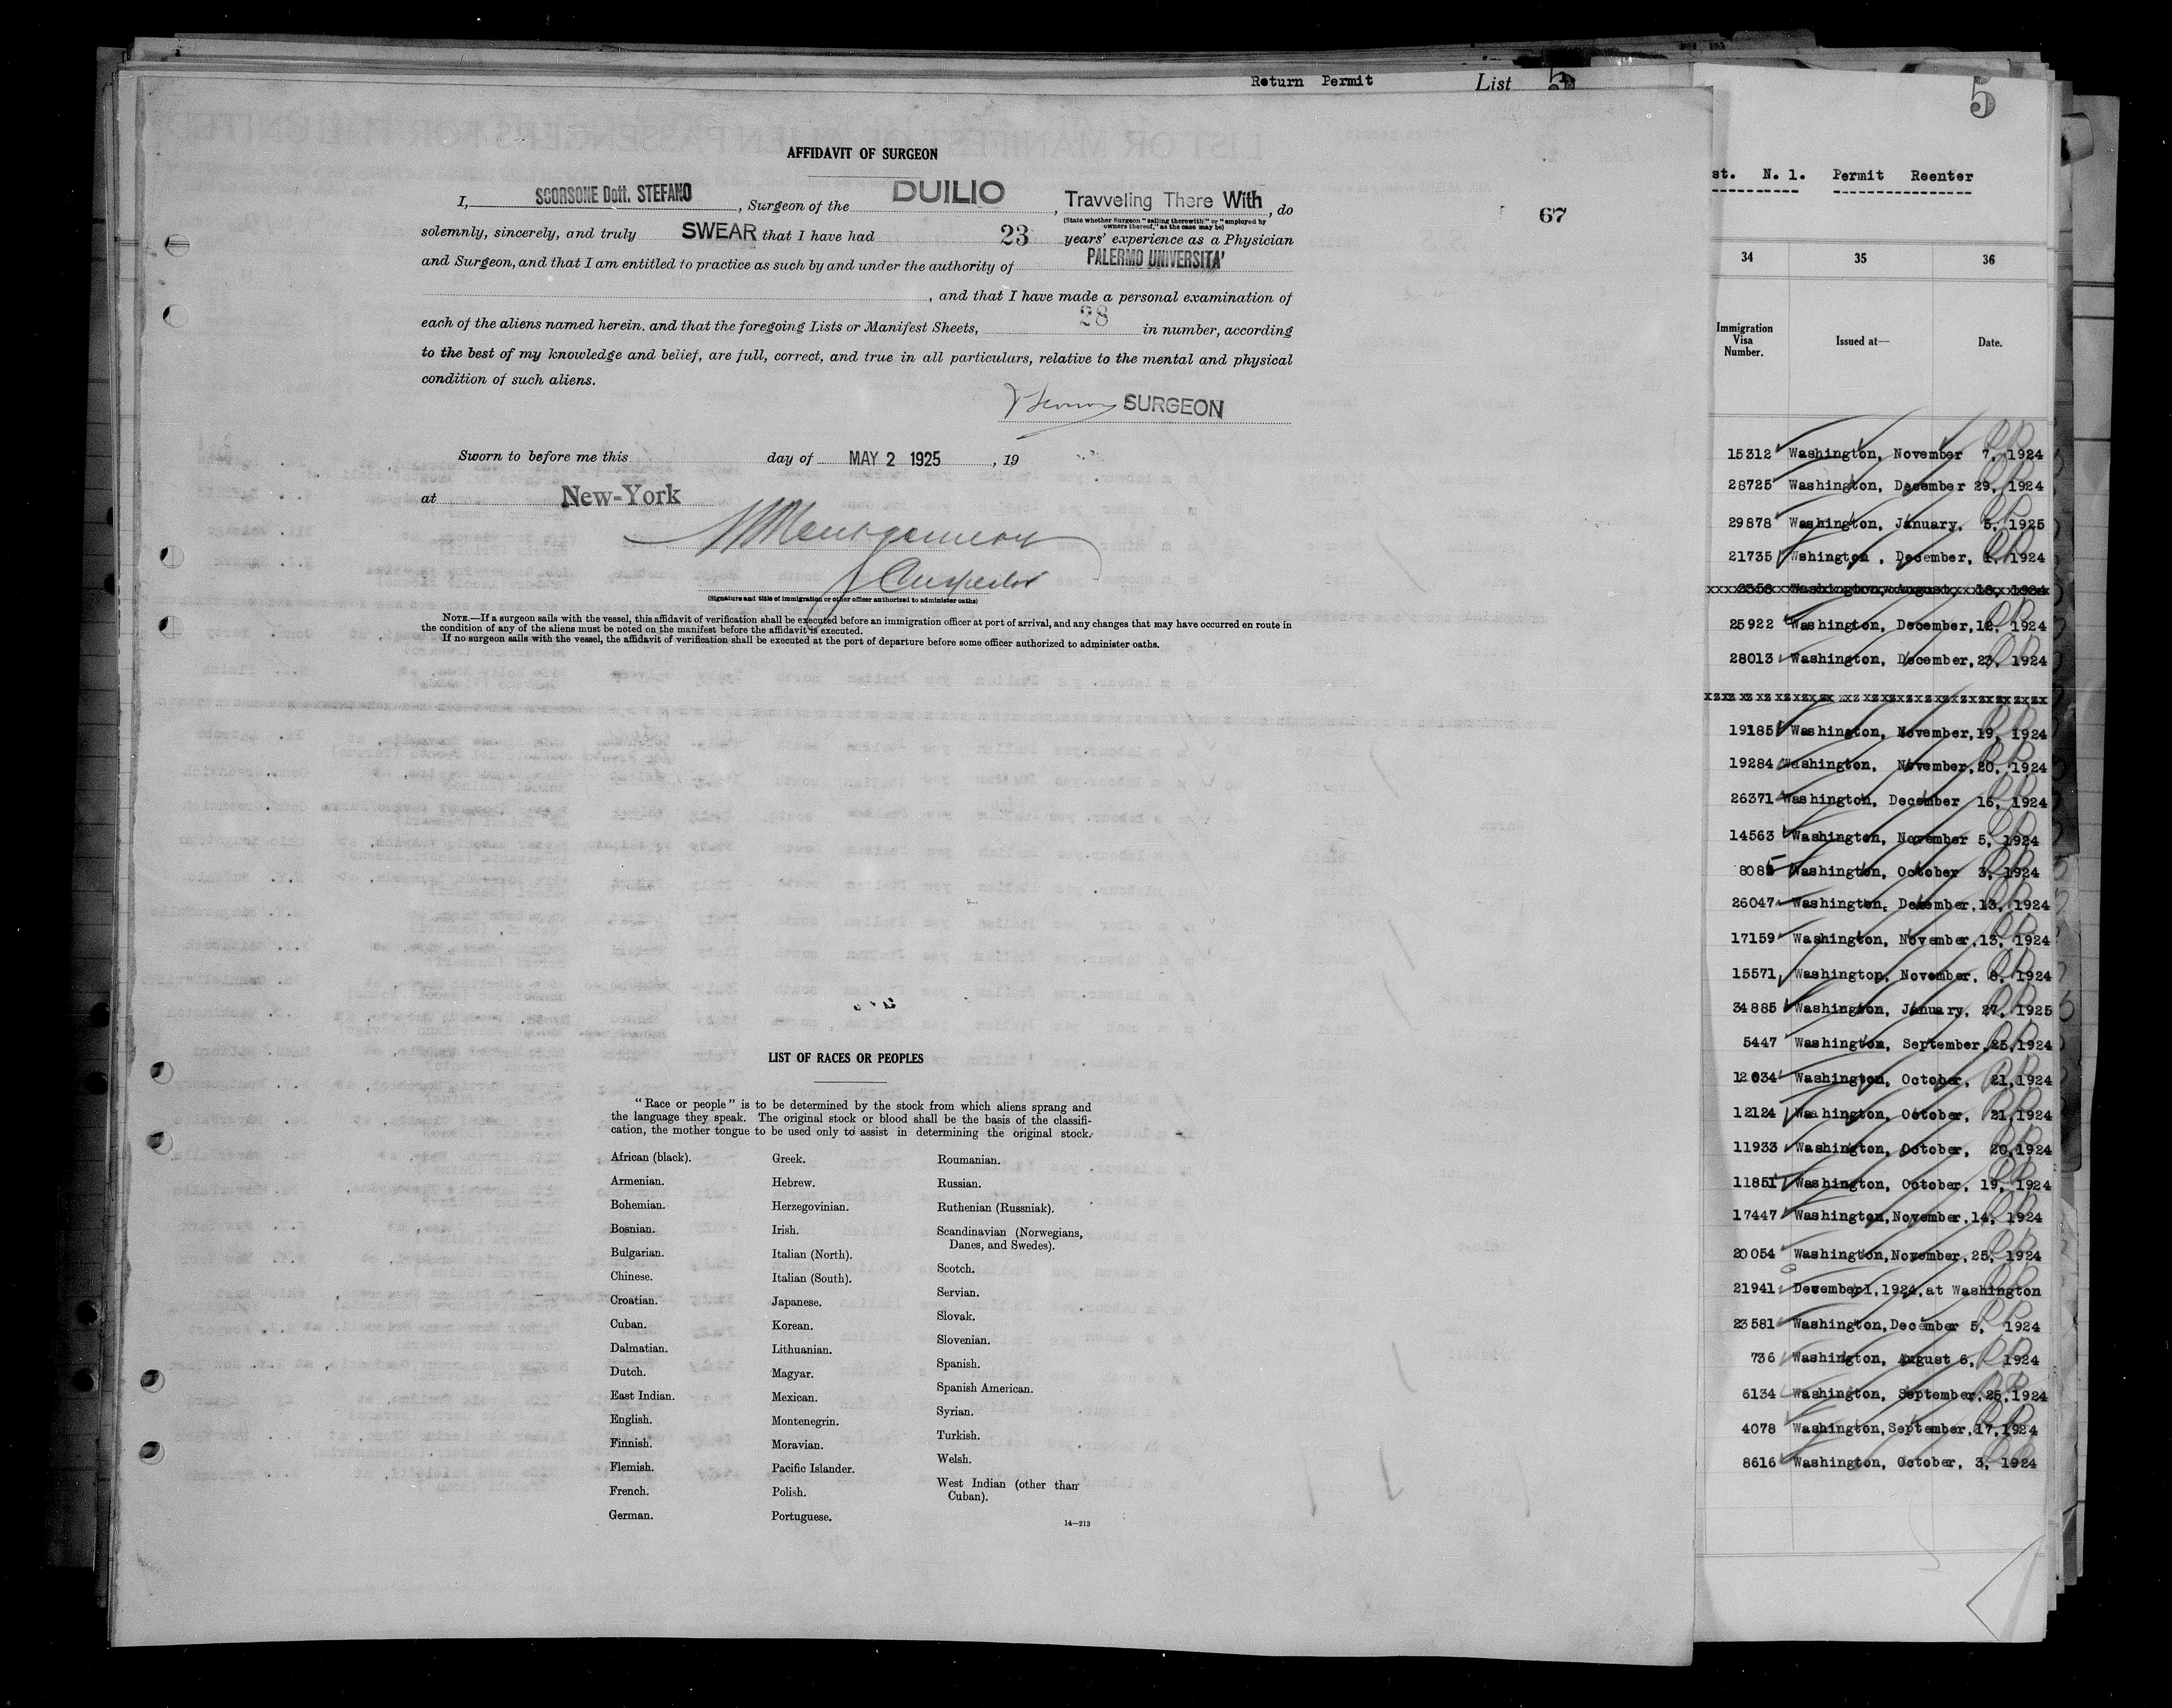 Return Permit List 5
AFFIDAVIT OF SURGEON
I, SCORSONE Dott. STEFANO, Surgeon of the DUILIO, Travveling There With, do
(State whether Surgeon "sailing therewith" or "employed by
owners thereof," as the case may be)
solemnly, sincerely, and truly SWEAR that I have had 23 years' experience as a Physician
and Surgeon, and that I am entitled to practice as such by and under the authority of PALERMO UNIVERSITA'
, and that I have made a personal examination of
each of the aliens named herein, and that the foregoing Lists or Manifest Sheets, 28 in number, according
to the best of my knowledge and belief, are full, correct, and true in all particulars, relative to the mental and physical
condition of such aliens.
SURGEON
Sworn to before me this day of MAY 2 1925, 19
at New-York
Montgomery
Inspector
(Signature and title of immigration or other officer authorized to administer oaths)
NOTE.—If a surgeon sails with the vessel, this affidavit of verification shall be executed before an immigration officer at port of arrival, and any changes that may have occurred en route in
the condition of any of the aliens must be noted on the manifest before the affidavit is executed.
If no surgeon sails with the vessel, the affidavit of verification shall be executed at the port of departure before some officer authorized to administer oaths.
67
LIST OF RACES OR PEOPLES
"Race or people" is to be determined by the stock from which aliens sprang and
the language they speak. The original stock or blood shall be the basis of the classifi-
cation, the mother tongue to be used only to assist in determining the original stock.
African (black).
Armenian.
Bohemian.
Bosnian.
Bulgarian.
Chinese.
Croatian.
Cuban.
Dalmatian.
Dutch.
East Indian.
English.
Finnish.
Flemish.
French.
German.
Greek.
Hebrew.
Herzegovinian.
Irish.
Italian (North).
Italian (South).
Japanese.
Korean.
Lithuanian.
Magyar.
Mexican.
Montenegrin.
Moravian.
Pacific Islander.
Polish.
Portuguese.
Roumanian.
Russian.
Ruthenian (Russniak).
Scandinavian (Norwegians,
Danes, and Swedes).
Scotch.
Servian.
Slovak.
Slovenian.
Spanish.
Spanish American.
Syrian.
Turkish.
Welsh.
West Indian (other than
Cuban).
14—213
5
st. N. 1. Permit Reenter
34 35 36
Immigration
Visa
Number.
Issued at—
Date.
15312 Washington, November 7, 1924
28725 Washington, December 29, 1924
29878 Washington, January, 5, 1925
21735 Wshington , December, 1, 1924
2358 Washington, August, 18, 1924
25922 Washington, December, 12, 1924
28013 Washington, December, 23, 1924
19185 Washington, November, 19, 1924
19284 Washington, November, 20, 1924
26371 Washington, December 16, 1924
14563 Washington, November 5, 1924
8085 Washington, October 3, 1924
26047 Washington, December, 13, 1924
17159 Washington, November, 13, 1924
15571 Washington, November, 8, 1924
34885 Washington, January, 27, 1925
5447 Washington, September, 25, 1924
12034 Washington, October, 21, 1924
12124 Washington, October, 21, 1924
11933 Washington, October, 20, 1924
11851 Washington, October, 19, 1924
17447 Washington, November, 14, 1924
20054 Washington, November, 25, 1924
21941 December 1, 1924, at Washington
23581 Washington, December 5, 1924
736 Washington, August 6, 1924
6134 Washington, September, 25, 1924
4078 Washington, September, 17, 1924
8616 Washington, October, 3, 1924